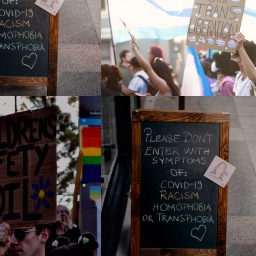 OF:
COVID-19
RACISM
HOMOPHOBIA
TRANSPHOBIA
TRANS
CHILDRENS
SAFETY
OIL
PLEASE DON'T
ENTER WITH
SYMPTOMS
OF:
COVID-19
RACISM
HOMOPHOBIA
OR TRANSPHOBIA